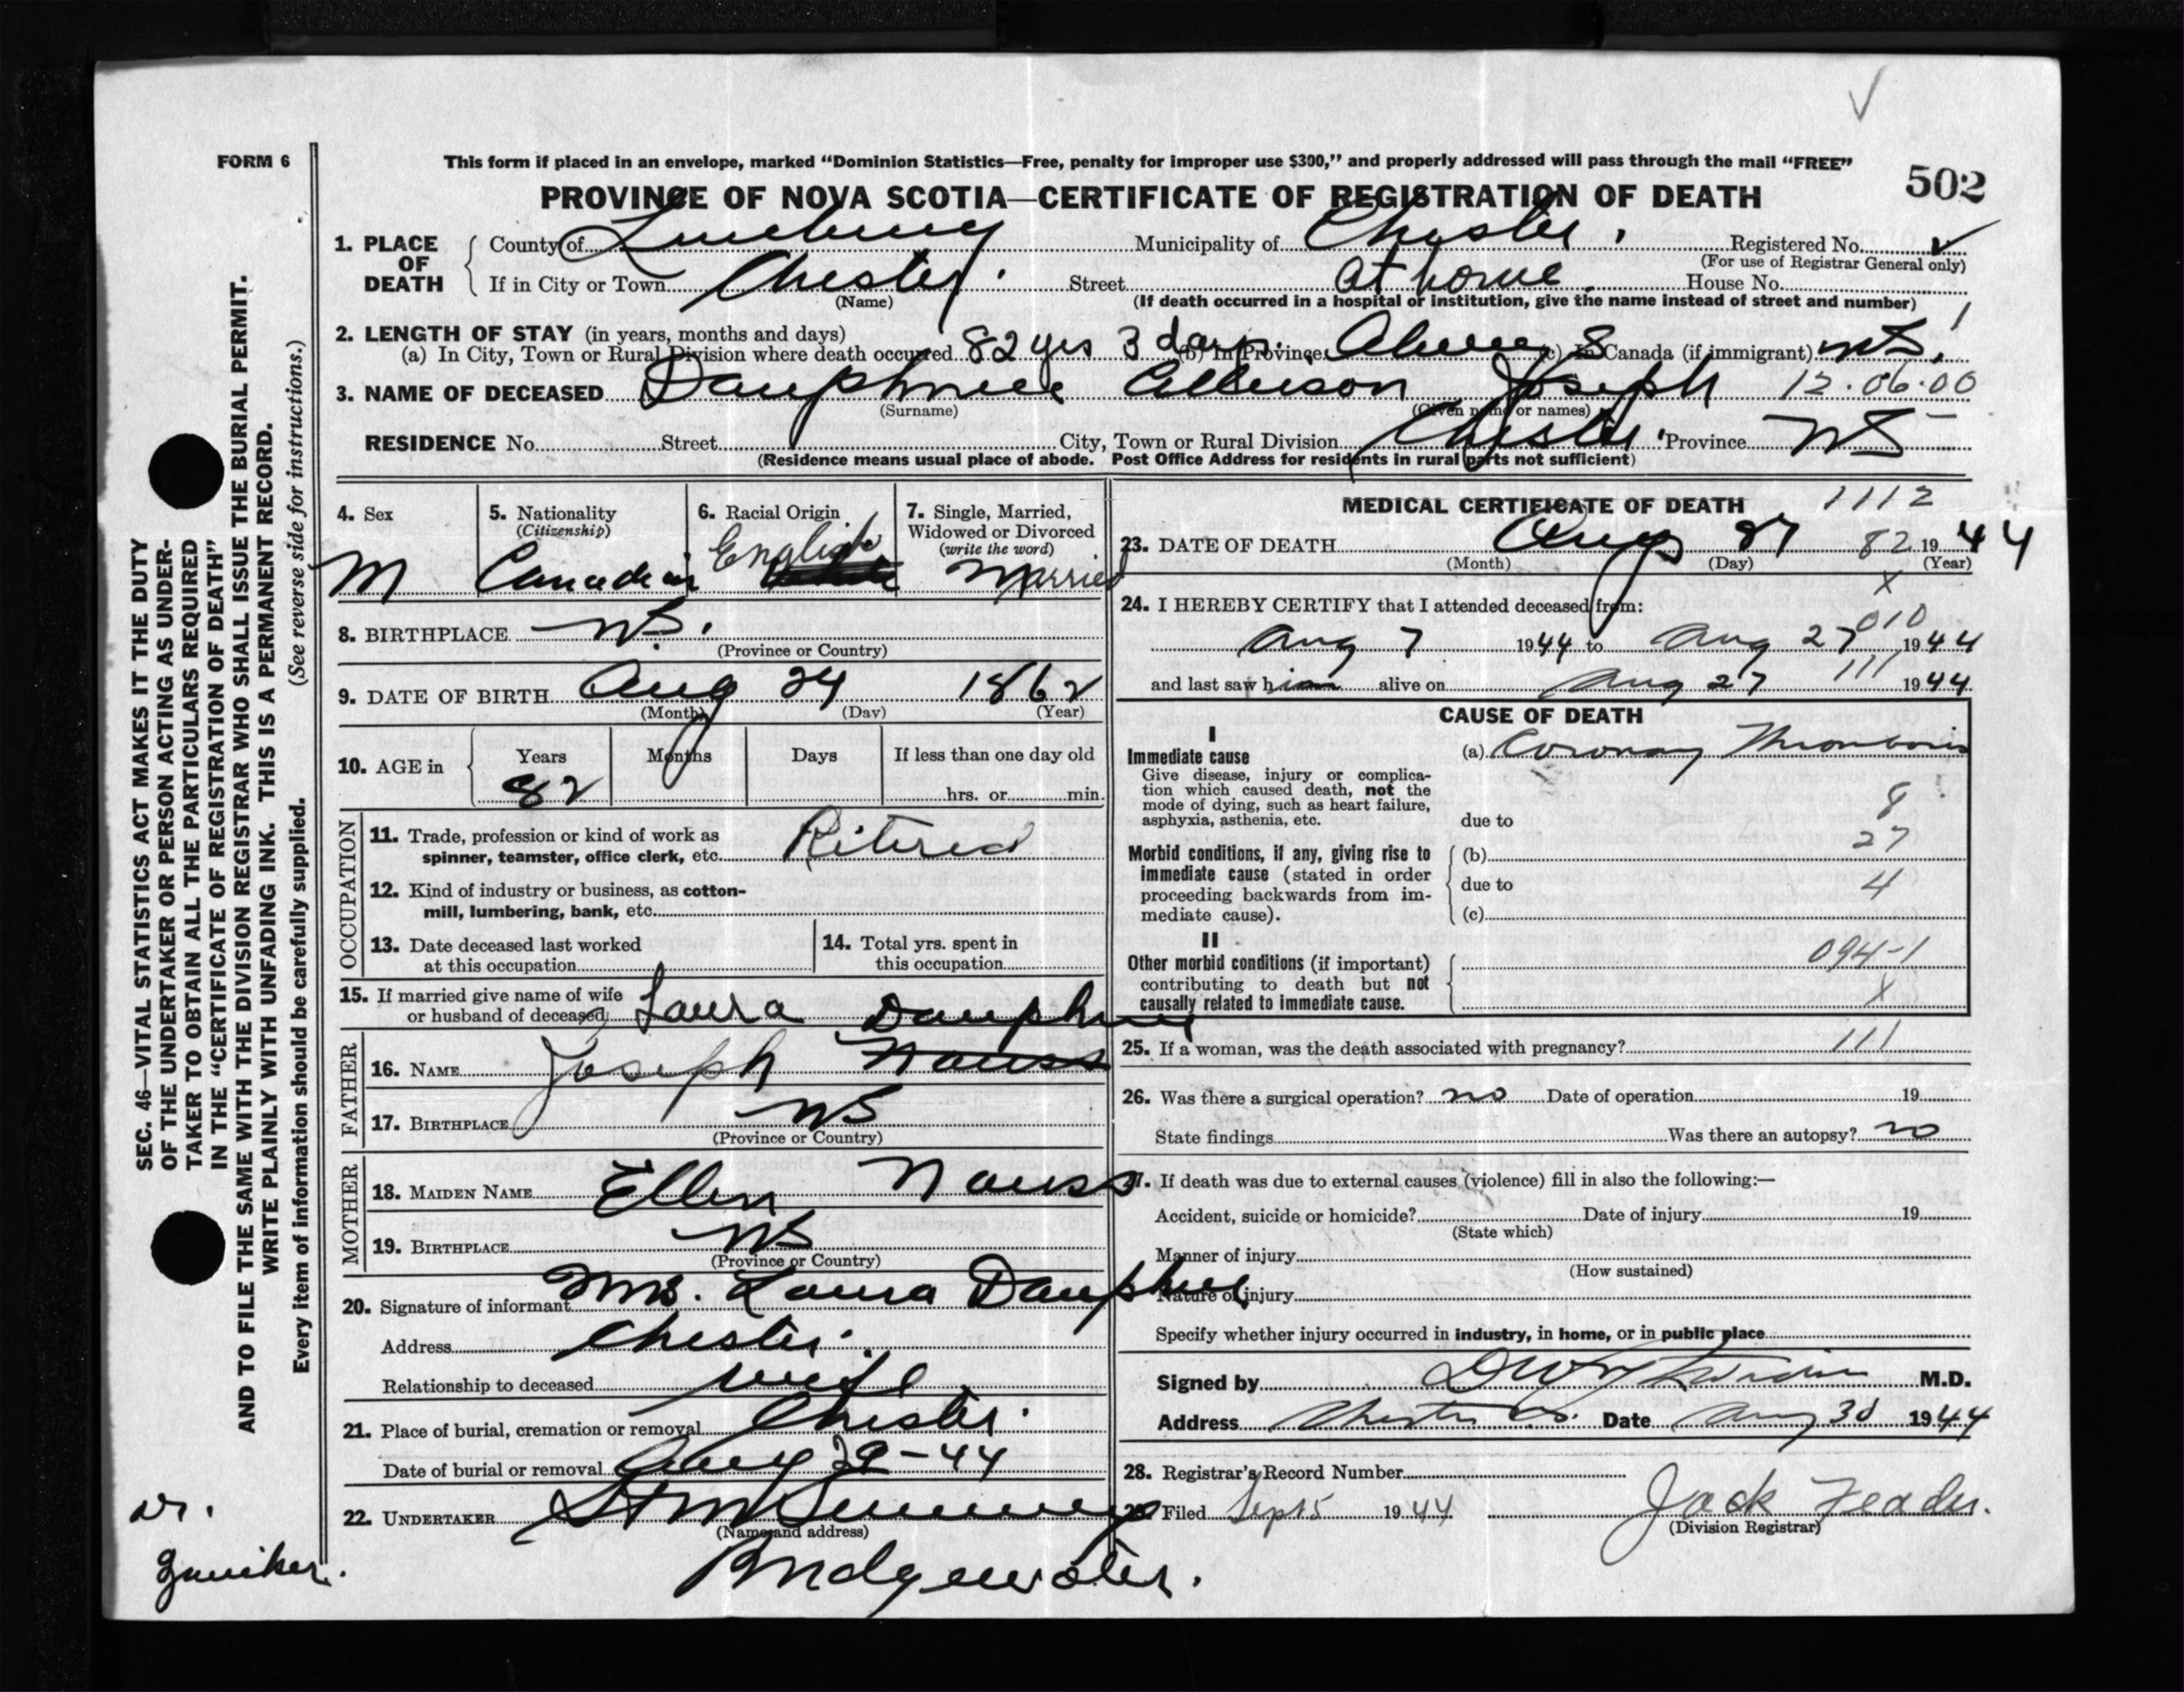 FORM 6
This form if placed in an envelope, marked "Dominion Statistics—Free, penalty for improper use $300," and properly addressed will pass through the mail "FREE"
PROVINCE OF NOVA SCOTIA—CERTIFICATE OF REGISTRATION OF DEATH
502
1. PLACE OF DEATH County of Lunenburg Municipality of Chester. Registered No.
(For use of Registrar General only)
If in City or Town Chester. Street at home. House No.
(Name) (If death occurred in a hospital or institution, give the name instead of street and number)
2. LENGTH OF STAY (in years, months and days)
(a) In City, Town or Rural Division where death occurred 82 yrs 3 days. (b) In Province Always (c) In Canada (if immigrant) NS.
3. NAME OF DECEASED Dauphinee Allison Joseph 12.06.00
(Surname) (Given name or names)
RESIDENCE No. Street City, Town or Rural Division Chester. Province NS
(Residence means usual place of abode. Post Office Address for residents in rural parts not sufficient)
4. Sex M
5. Nationality (Citizenship) Canadian
6. Racial Origin English
7. Single, Married, Widowed or Divorced (write the word) Married
8. BIRTHPLACE NS.
(Province or Country)
9. DATE OF BIRTH Aug 24 1862
(Month) (Day) (Year)
10. AGE in Years Months Days If less than one day old
82 hrs. or min.
OCCUPATION
11. Trade, profession or kind of work as
spinner, teamster, office clerk, etc. Ritired
12. Kind of industry or business, as cotton-
mill, lumbering, bank, etc.
13. Date deceased last worked
at this occupation
14. Total yrs. spent in
this occupation
15. If married give name of wife
or husband of deceased Laura Dauphinee
FATHER
16. NAME Joseph Nauss
17. BIRTHPLACE NS
(Province or Country)
MOTHER
18. MAIDEN NAME Ellen Nauss
19. BIRTHPLACE NS
(Province or Country)
20. Signature of informant Mrs. Laura Dauphinee
Address Chester.
Relationship to deceased wife.
21. Place of burial, cremation or removal Chester.
Date of burial or removal Aug 29-44
22. UNDERTAKER
(Name and address)
Bridgewater.
MEDICAL CERTIFICATE OF DEATH 1112
23. DATE OF DEATH Aug 27 82 1944
(Month) (Day) (Year)
X
24. I HEREBY CERTIFY that I attended deceased from:
010
Aug 7 1944 to Aug 27 1944
and last saw him alive on Aug 27 111 1944
CAUSE OF DEATH
I
Immediate cause (a) Coronary Thrombosis
Give disease, injury or complica-
tion which caused death, not the
mode of dying, such as heart failure,
asphyxia, asthenia, etc. due to 8
27
Morbid conditions, if any, giving rise to (b)
immediate cause (stated in order due to 4
proceeding backwards from im-
mediate cause). (c)
II
Other morbid conditions (if important) 094-1
contributing to death but not
causally related to immediate cause. X
25. If a woman, was the death associated with pregnancy? 111
26. Was there a surgical operation? no Date of operation 19
State findings Was there an autopsy? no
27. If death was due to external causes (violence) fill in also the following:—
Accident, suicide or homicide? Date of injury 19
(State which)
Manner of injury
(How sustained)
Nature of injury
Specify whether injury occurred in industry, in home, or in public place
Signed by M.D.
Address Chester NS. Date Aug 30 1944
28. Registrar's Record Number
29. Filed Sept 5 1944 Jack Feader.
(Division Registrar)
SEC. 46—VITAL STATISTICS ACT MAKES IT THE DUTY
OF THE UNDERTAKER OR PERSON ACTING AS UNDER-
TAKER TO OBTAIN ALL THE PARTICULARS REQUIRED
IN THE "CERTIFICATE OF REGISTRATION OF DEATH"
AND TO FILE THE SAME WITH THE DIVISION REGISTRAR WHO SHALL ISSUE THE BURIAL PERMIT.
WRITE PLAINLY WITH UNFADING INK. THIS IS A PERMANENT RECORD.
Every item of information should be carefully supplied. (See reverse side for instructions.)
Dr.
Zwicker.